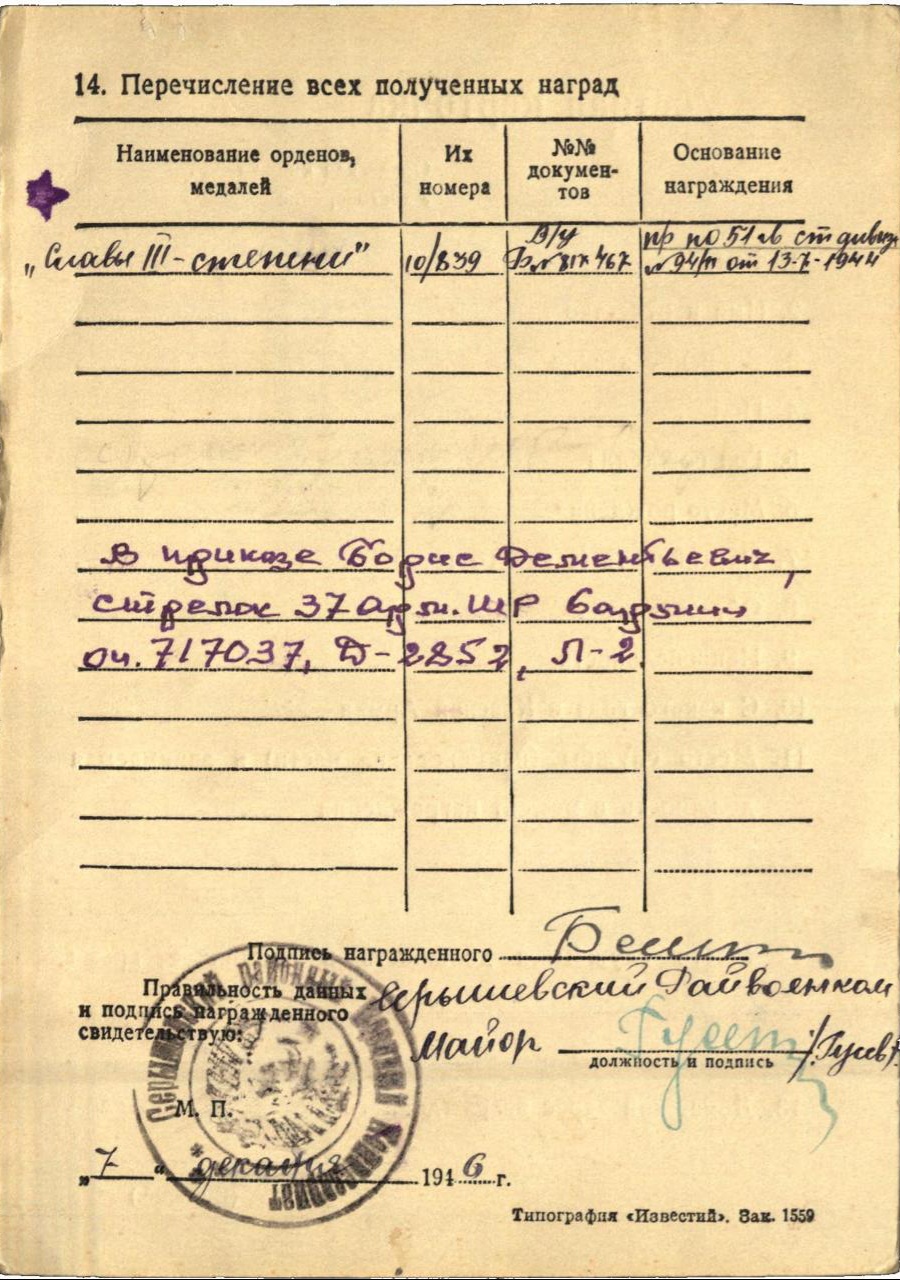 14. Перечисление всех полученных наград
Наименование орденов, медалей
Их номера
№№ докумен-тов
Основание награждения
„Славы III-степени"
10/839
В/у
467
пр по 51 гв ст дивиз
№ 94/н от 13-7-1944
В приказе Борис Дементьевич,
стрелок 37
оч. 717037, Д-2852, Л-2.
Подпись награжденного
Правильность данных
и подпись награжденного
свидетельствую:
Серышевский Райвоенком
Майор /Гусев/
должность и подпись
М. П.
Серышевский районный военный комиссариат
„7" декабря 1946 г.
Типография «Известий». Зак. 1559